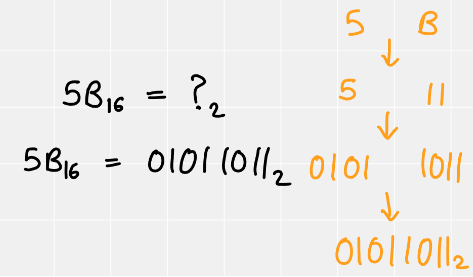 5B₁₆ = ?₂
5B₁₆ = 01011011₂
5 B
↓
5 11
↓
0101 1011
↓
01011011₂